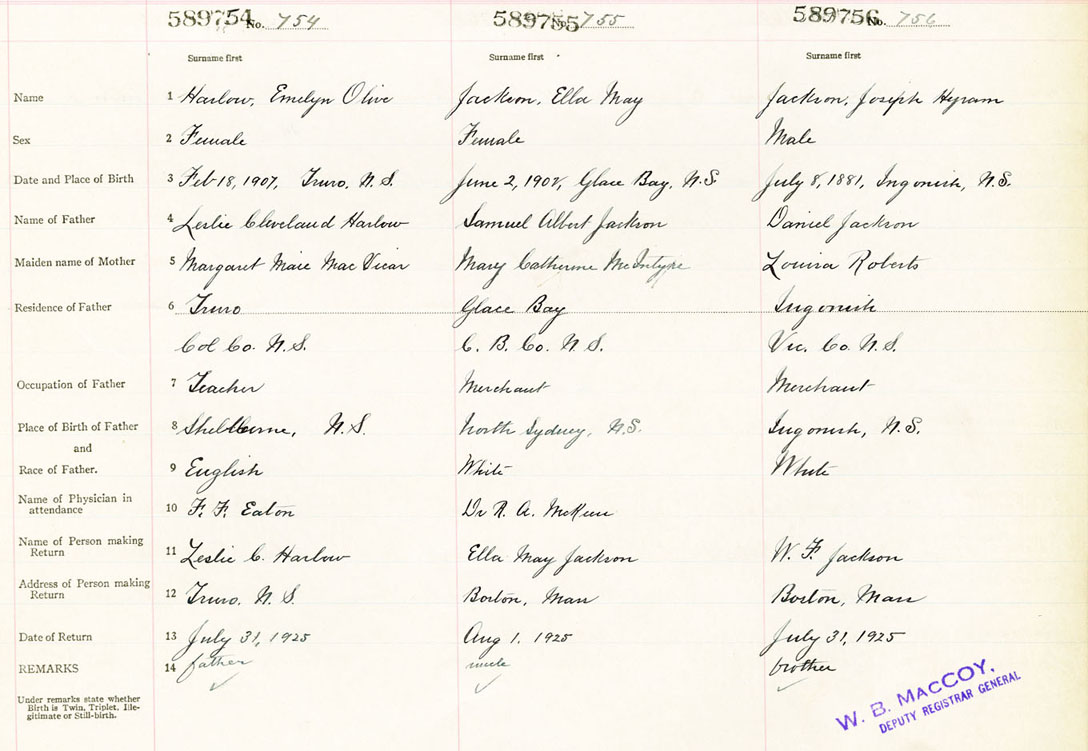 589754 No. 754 589755 No. 755 589756 No. 756
Surname first Surname first Surname first
Name 1 Harlow, Emelyn Olive Jackson, Ella May Jackson, Joseph Hyram
Sex 2 Female Female Male
Date and Place of Birth 3 Feb 18, 1907, Truro, N.S. June 2, 1902, Glace Bay, N.S. July 8, 1881, Ingonish, N.S.
Name of Father 4 Leslie Cleveland Harlow Samuel Albert Jackson Daniel Jackson
Maiden name of Mother 5 Margaret Mac Vicar Mary Catherine McIntyre Louisa Roberts
Residence of Father 6 Truro Glace Bay Ingonish
Col Co. N.S. C. B. Co. N.S. Vic. Co. N.S.
Occupation of Father 7 Teacher Merchant Merchant
Place of Birth of Father 8 Shelburne, N.S. North Sydney, N.S. Ingonish, N.S.
and
Race of Father. 9 English White White
Name of Physician in
attendance 10 F. F. Eaton Dr R. A. McKeen
Name of Person making
Return 11 Leslie C. Harlow Ella May Jackson W. F. Jackson
Address of Person making
Return 12 Truro, N.S. Boston, Mass Boston, Mass
Date of Return 13 July 31, 1925 Aug 1, 1925 July 31, 1925
REMARKS 14 father uncle brother
Under remarks state whether
Birth is Twin, Triplet, Ille-
gitimate or Still-birth.
W. B. MACCOY.
DEPUTY REGISTRAR GENERAL